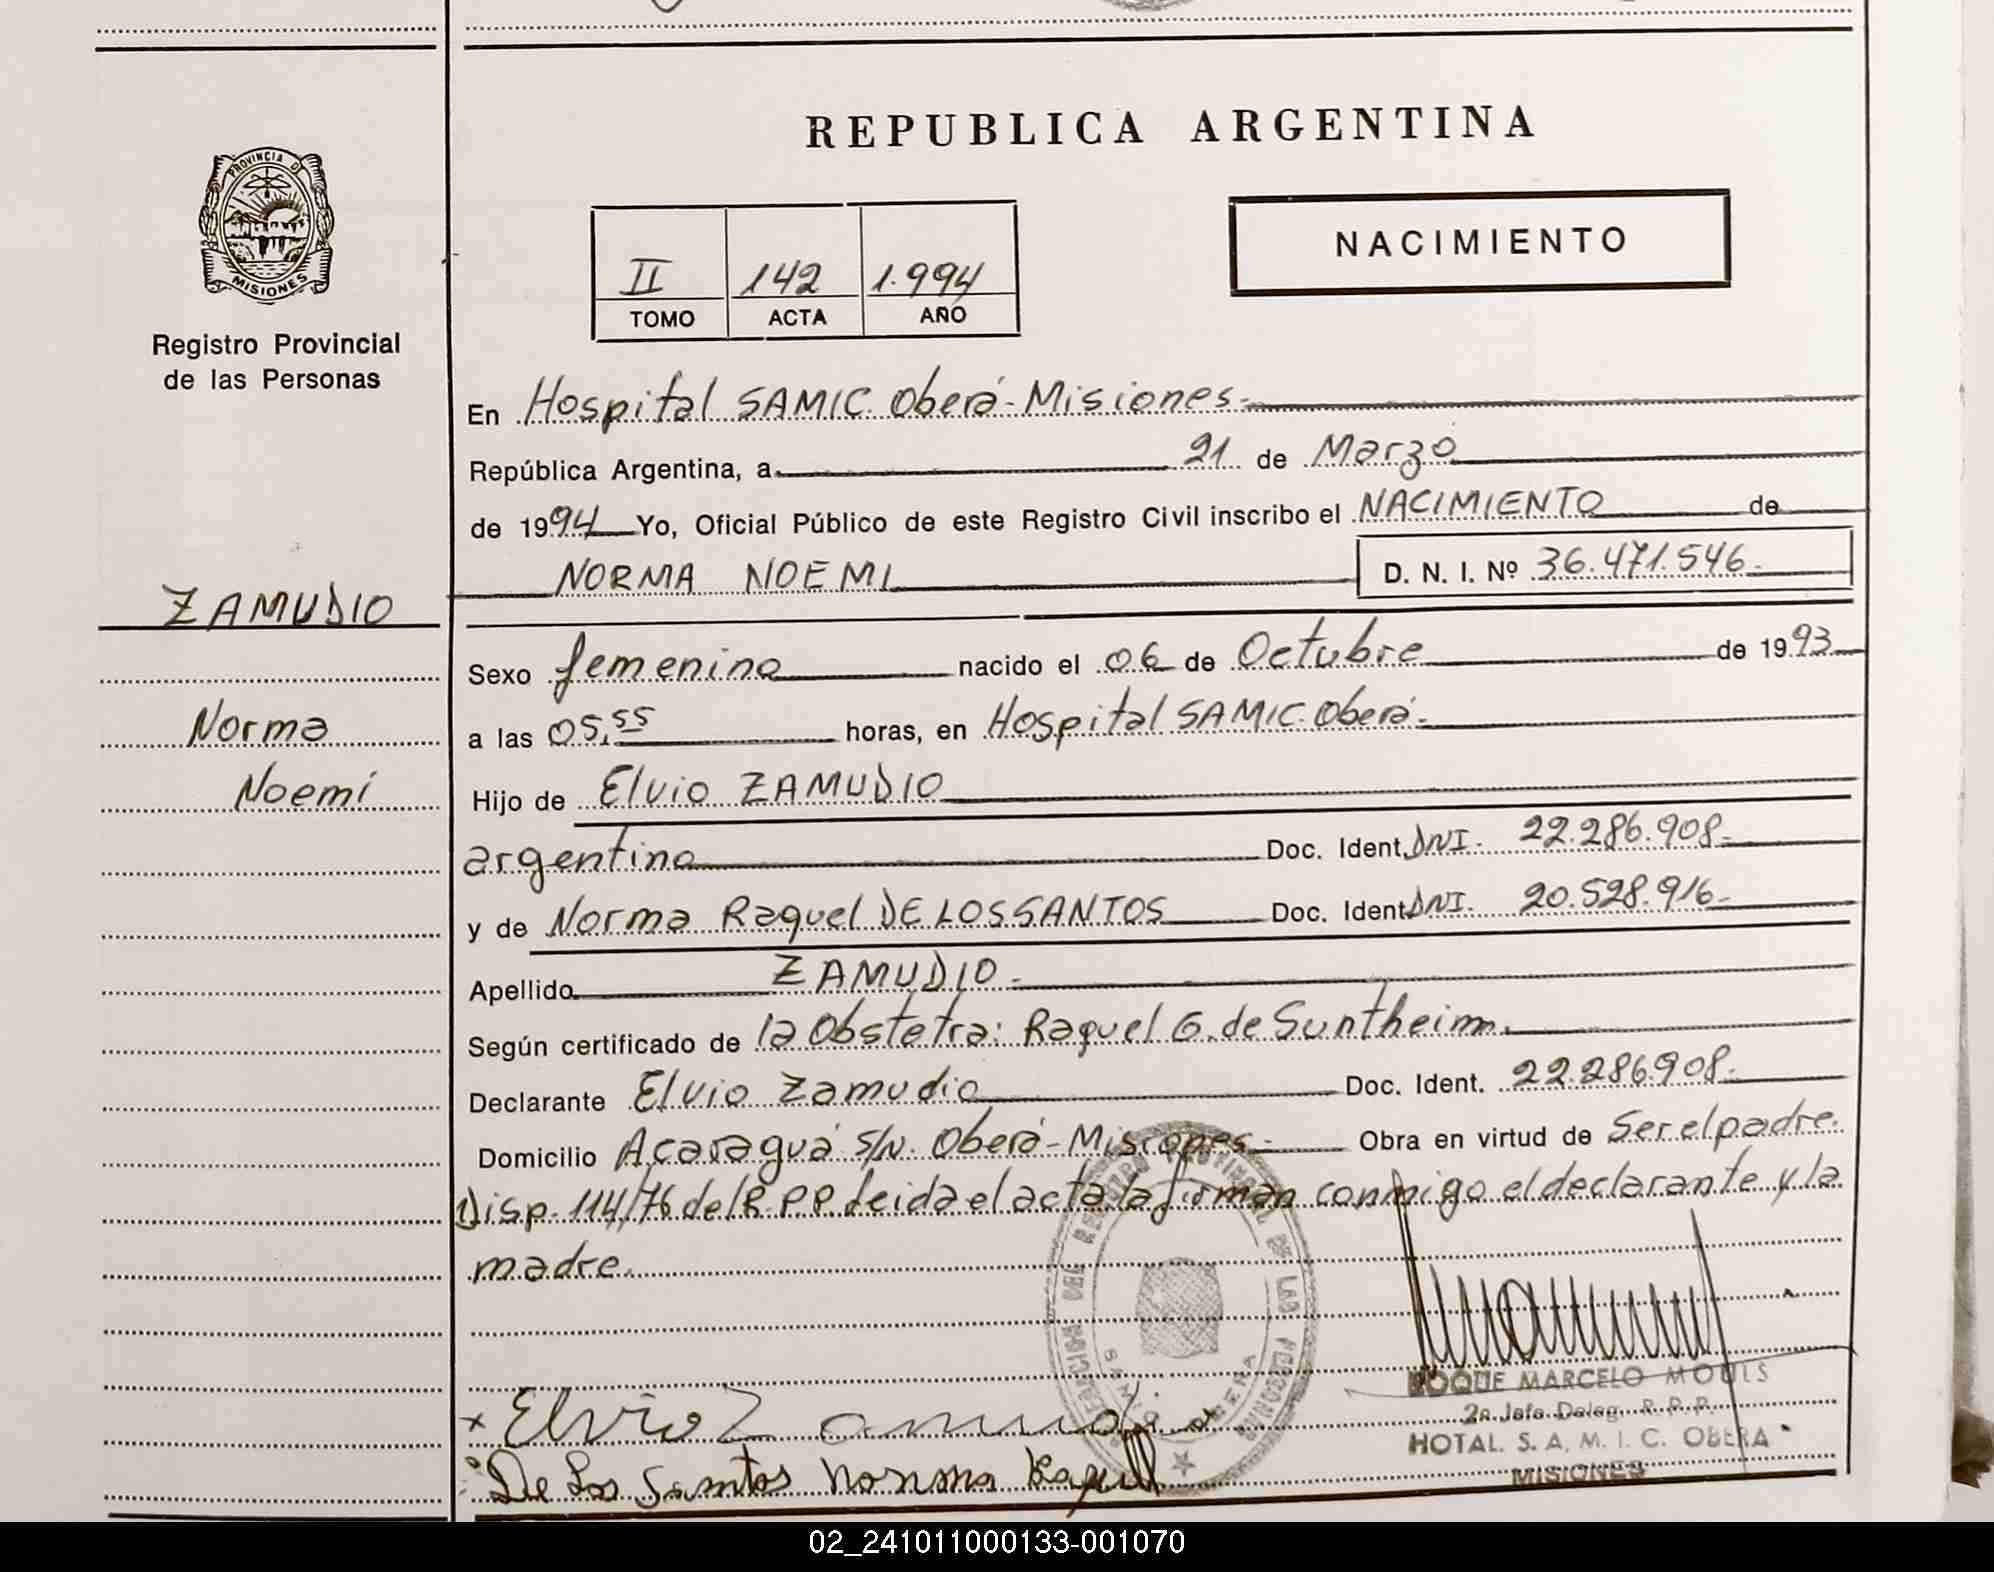 PROVINCIA D
MISIONES
Registro Provincial
de las Personas
ZAMUDIO
Norma
Noemí
REPUBLICA ARGENTINA
II 142 1.994
TOMO ACTA AÑO
NACIMIENTO
En Hospital SAMIC. Oberá-Misiones.
República Argentina, a 21 de Marzo
de 1994 Yo, Oficial Público de este Registro Civil inscribo el NACIMIENTO de
NORMA NOEMI D. N. I. Nº 36.471.546.
Sexo femenino nacido el 06 de Octubre de 1993
a las 05,55 horas, en Hospital SAMIC. Oberá.
Hijo de Elvio ZAMUDIO
argentino Doc. Ident. DNI. 22.286.908.
y de Norma Raquel DE LOS SANTOS Doc. Ident. DNI. 20.528.916.
Apellido ZAMUDIO.
Según certificado de la Obstetra: Raquel G. de Suntheim.
Declarante Elvio Zamudio Doc. Ident. 22.286908.
Domicilio Acaraguá s/n. Oberá-Misiones. Obra en virtud de Ser el padre.
Disp. 114/76 del R.P.P. leida el acta la firman conmigo el declarante y la
madre.
x Elvio Zamudio
De Los Santos Norma Raquel
ROQUE MARCELO MOULS
2º Jefe Deleg. R. P. P.
HOTAL. S. A. M. I. C. OBERA
MISIONES
02_241011000133-001070